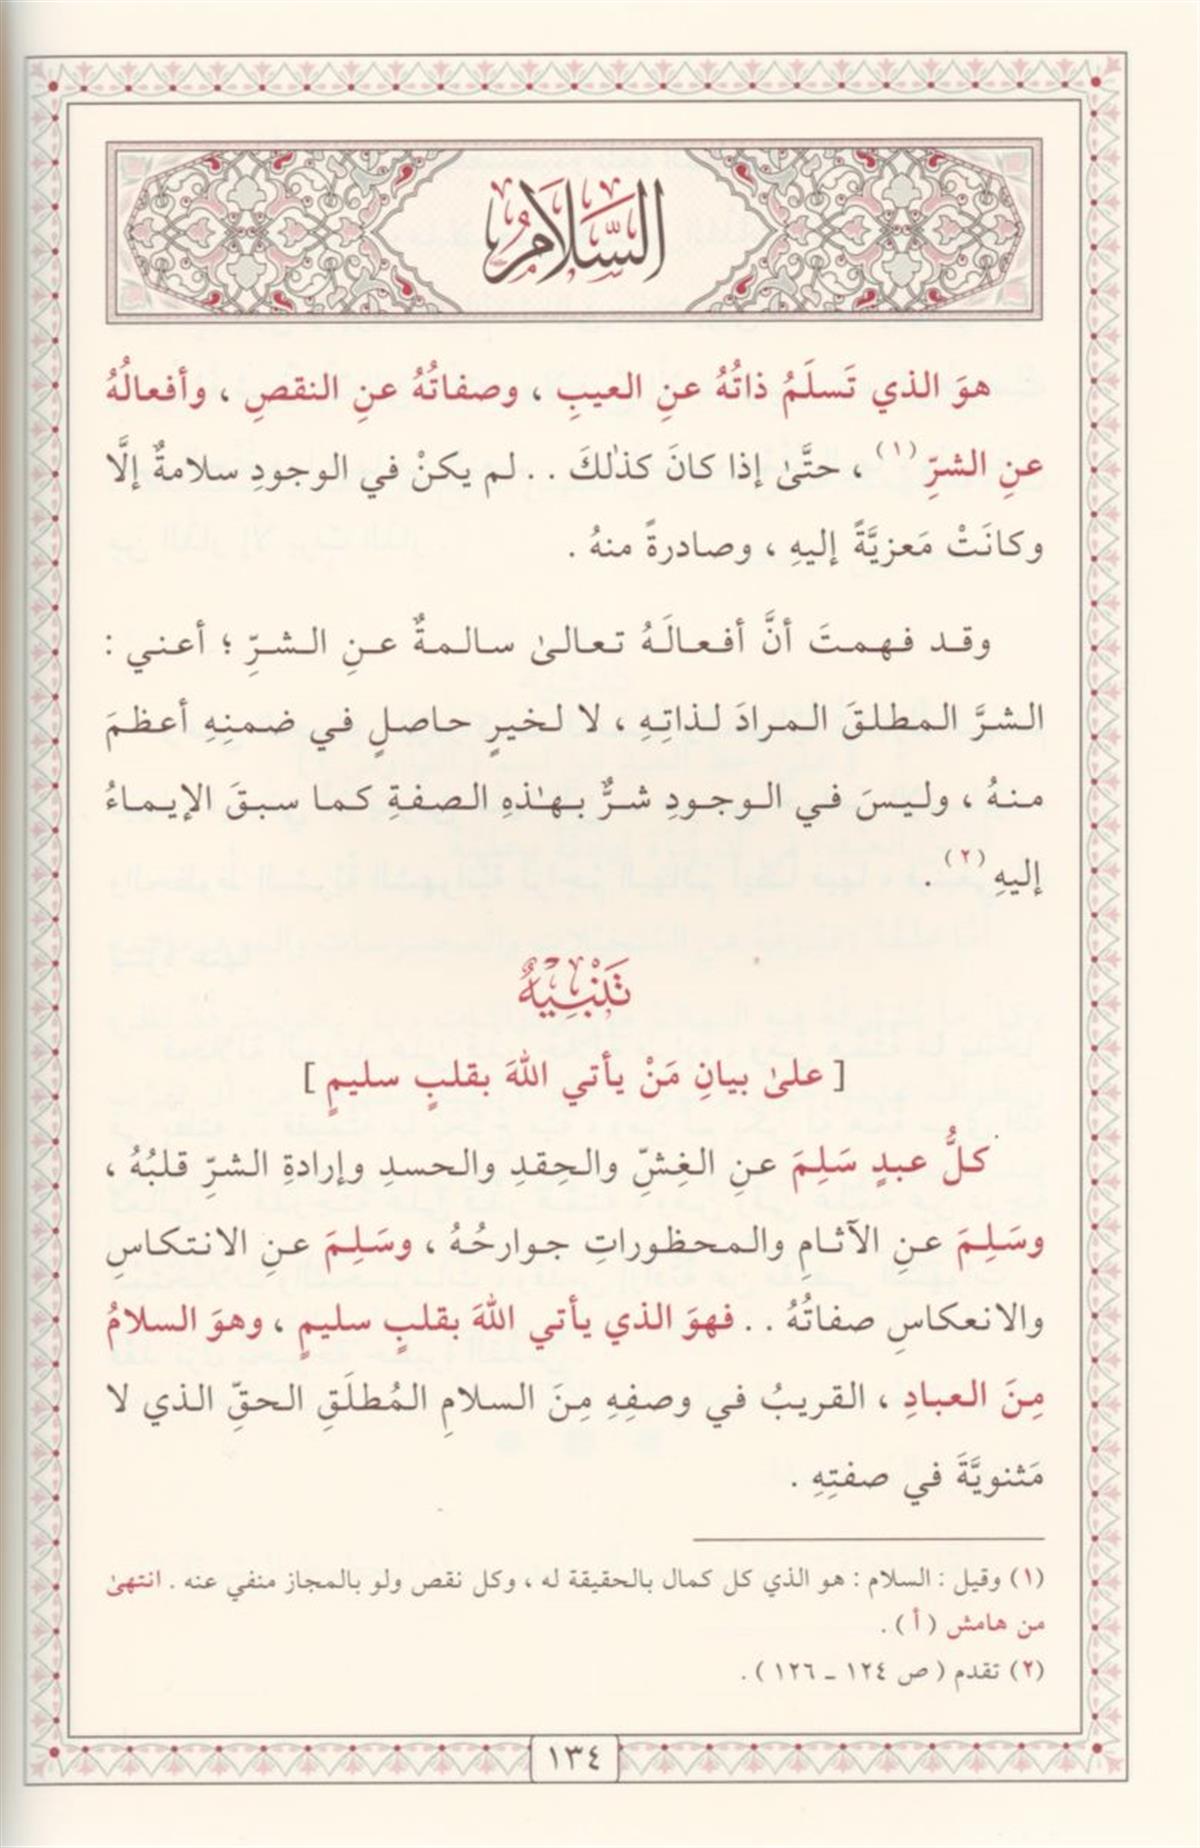 السَّلَامُ
هوَ الذي تَسلَمُ ذاتُهُ عنِ العيبِ ، وصفاتُهُ عنِ النقصِ ، وأفعالُهُ
عنِ الشرِّ (١) ، حتَّىٰ إذا كانَ كذٰلكَ . . لم يكنْ في الوجودِ سلامةٌ إلَّا
وكانَتْ مَعزيَّةً إليهِ ، وصادرةً منهُ .
وقد فهمتَ أنَّ أفعالَهُ تعالىٰ سالمةٌ عنِ الشرِّ ؛ أعني :
الشرَّ المطلقَ المرادَ لذاتِهِ ، لا لخيرٍ حاصلٍ في ضمنِهِ أعظمَ
منهُ ، وليسَ في الوجودِ شرٌّ بهٰذهِ الصفةِ كما سبقَ الإيماءُ
إليهِ (٢) .
تَنْبِيْهٌ
[ علىٰ بيانِ مَنْ يأتي اللهَ بقلبٍ سليمٍ ]
كلُّ عبدٍ سَلِمَ عنِ الغِشِّ والحِقدِ والحسدِ وإرادةِ الشرِّ قلبُهُ ،
وسَلِمَ عنِ الآثامِ والمحظوراتِ جوارحُهُ ، وسَلِمَ عنِ الانتكاسِ
والانعكاسِ صفاتُهُ . . فهوَ الذي يأتي اللهَ بقلبٍ سليمٍ ، وهوَ السلامُ
مِنَ العبادِ ، القريبُ في وصفِهِ مِنَ السلامِ المُطلَقِ الحقِّ الذي لا
مَثنويَّةَ في صفتِهِ .
(١) وقيل : السلام : هو الذي كل كمال بالحقيقة له ، وكل نقص ولو بالمجاز منفي عنه . انتهىٰ
من هامش ( أ ) .
(٢) تقدم ( ص ١٢٤ ـ ١٢٦ ) .
١٣٤